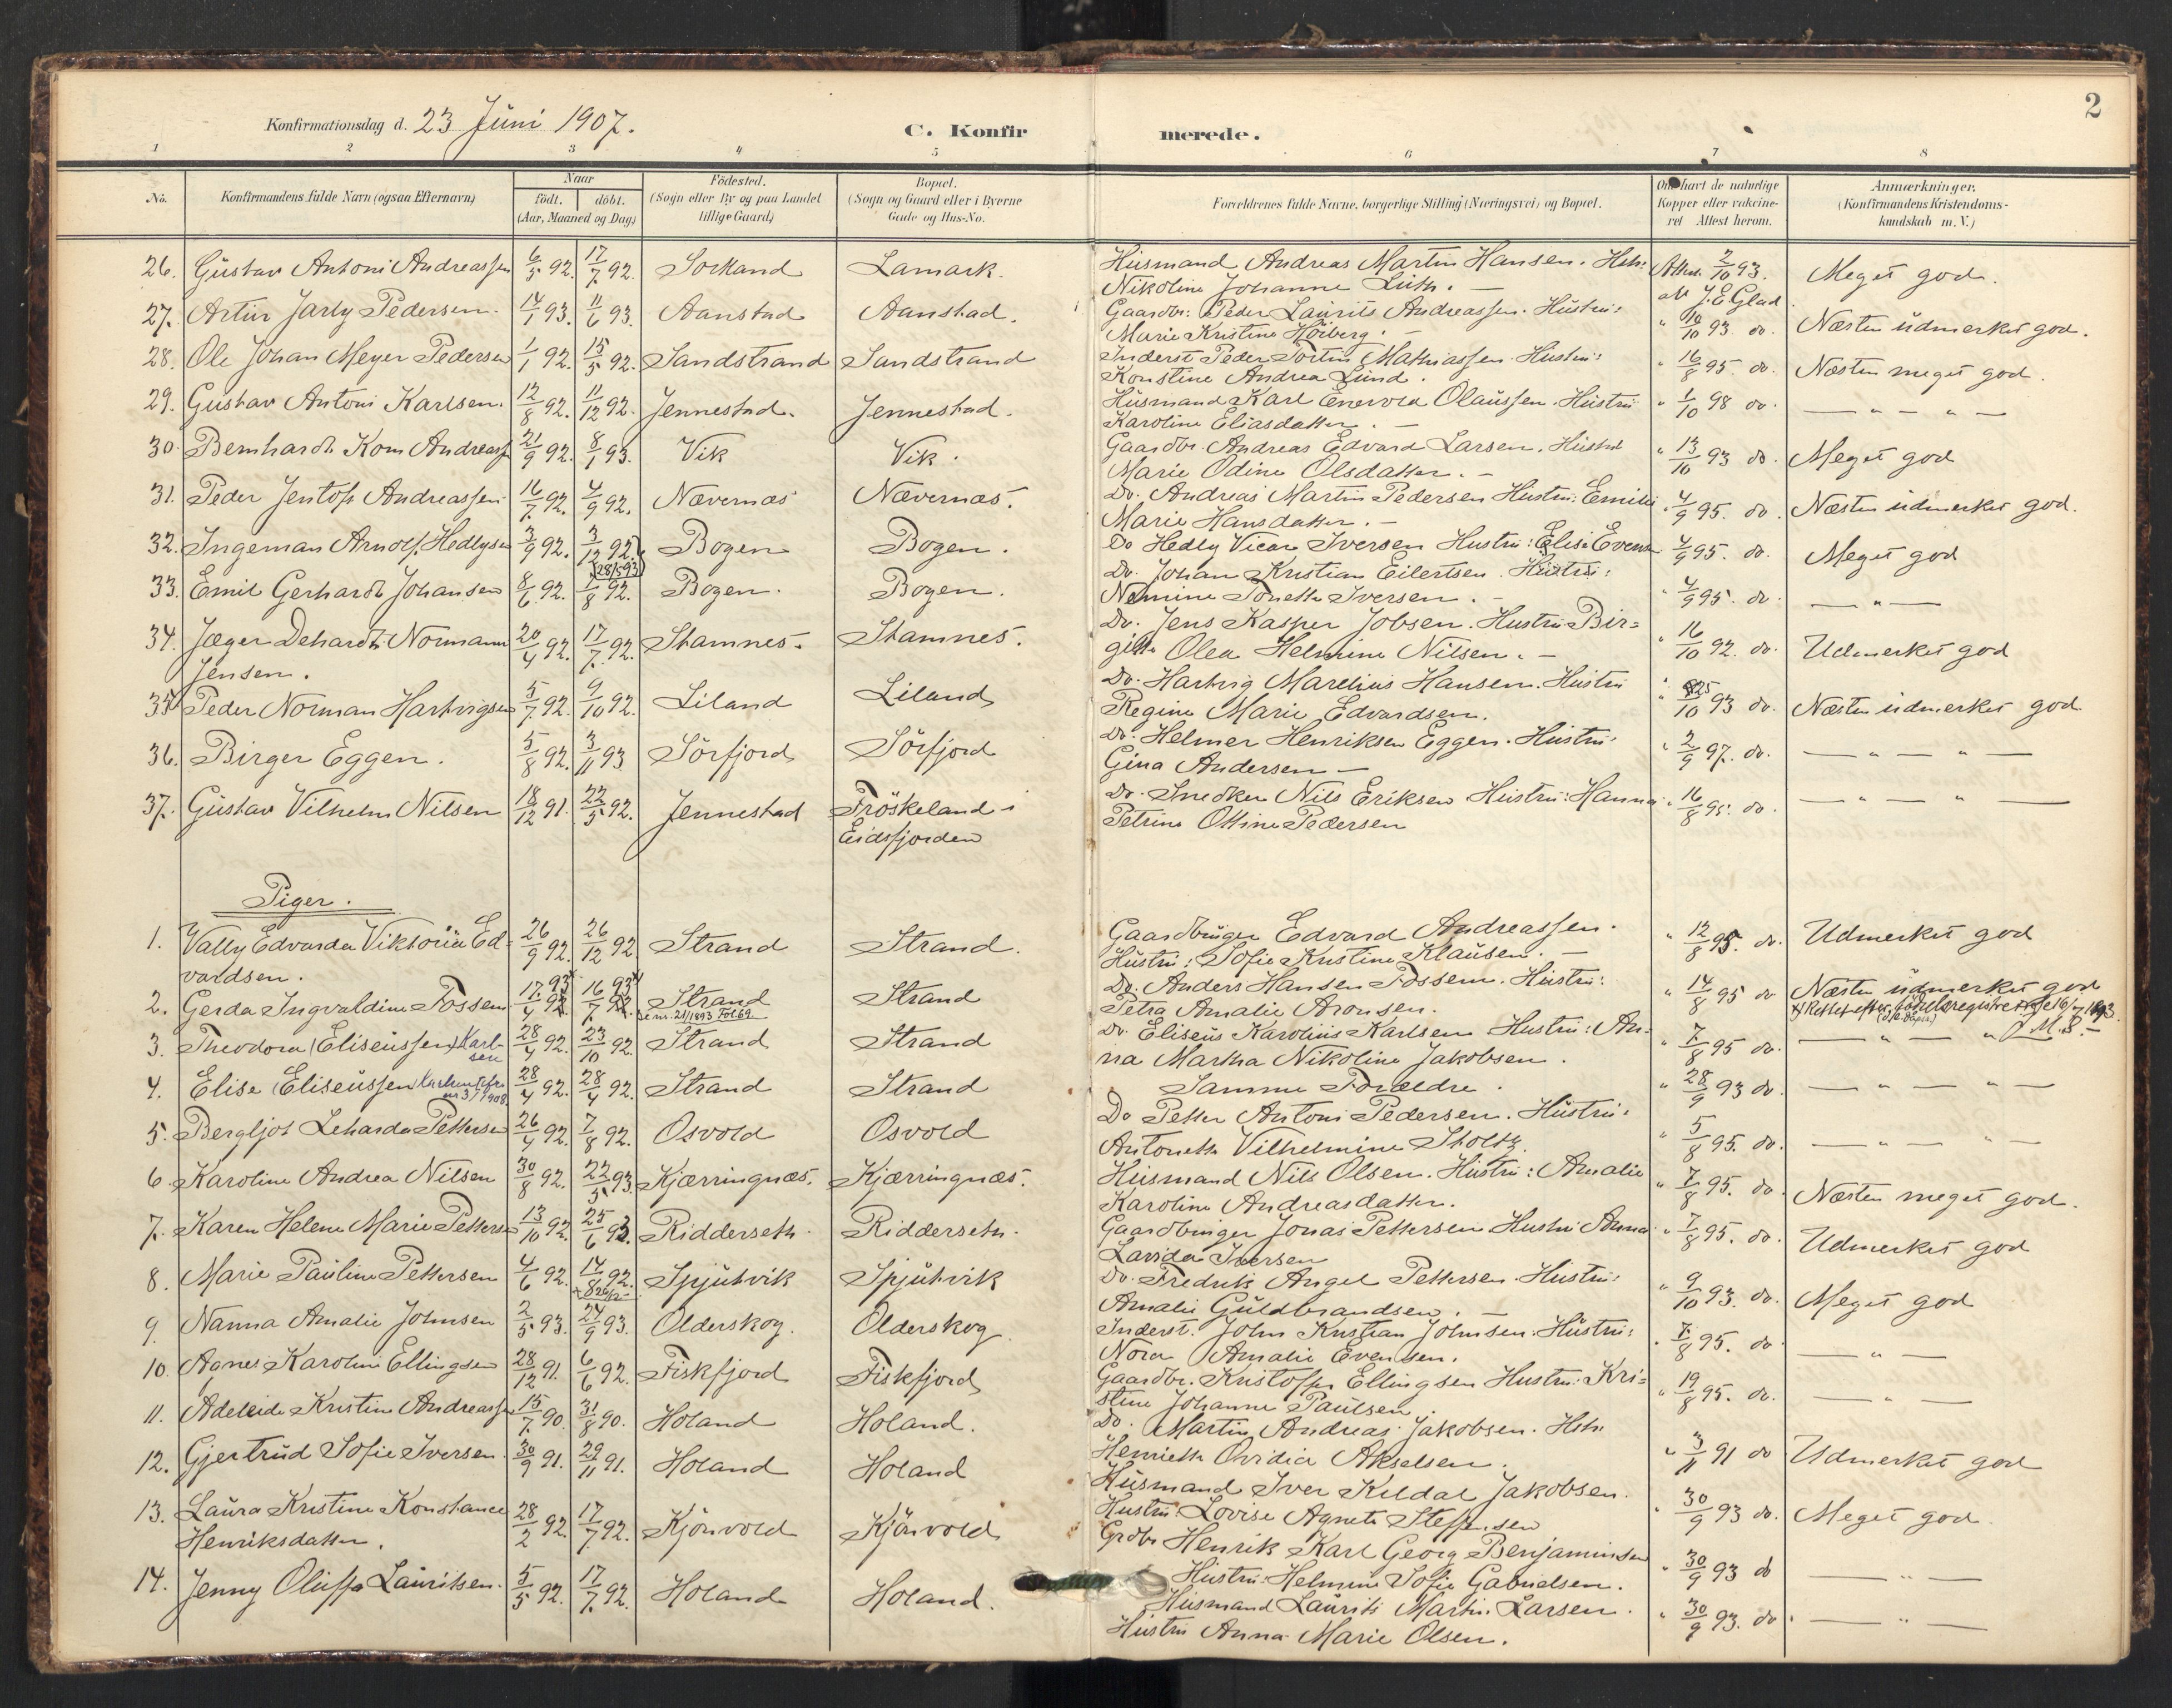 2
Konfirmationsdag d. 23 Juni 1907.
C. Konfir merede.
1 2 3 4 5 6 7 8
No. Konfirmandens fulde Navn (ogsaa Efternavn)
Naar
födt. döbt.
(Aar, Maaned og Dag)
Födested.
(Sogn eller By og paa Landet
tillige Gaard)
Bopæl.
(Sogn og Gaard eller i Byerne
Gade og Hus-No.
Forældrenes fulde Navne, borgerlige Stilling (Næringsvei) og Bopæl.
Om havt de naturlige
Kopper eller vakcine-
ret Attest herom.
Anmærkninger.
(Konfirmandens Kristendoms-
kundskab m. V.)
26. Gustav Antoni Andreassen 6/5 92. 17/7 92. Sortland Lamark. Husmand Andreas Martin Hansen. Hstr: Attest 2/10 93. Meget god.
Nikoline Johanne Luth. – af J. E Glad
27. Artur Jarly Pedersen. 14/1 93. 11/6 93. Aanstad Aanstad. Gaardbr: Peder Laurits Andreassen. Hustru: " 10/10 93. do. Næsten udmerket god.
Marie Kristine Höiberg. –
28. Ole Johan Meyer Pedersen 1/1 92. 15/5 92. Sandstrand Sandstrand Inderst Peder Mathiassen. Hustru: " 16/8 95. do. Næsten meget god.
Konstine Andrea Lund.
29. Gustav Antoni Karlsen. 12/8 92. 11/12 92. Jennestad. Jennestad. Husmand Karl Enevold Olaussen. Hustru " 1/10 98 do. — " — " —
Karoline Eliasdatter. –
30. Bernhardt Kom Andreass 21/9 92. 8/1 93. Vik Vik. Gaardbr. Andreas Edvard Larsen. Hustru " 13/10 93 do. Meget god
Marie Odine Olsdatter. –
31. Peder Jentoft Andreassen 16/7 92. 4/9 92. Nævernæs Nævernæs. Do. Andreas Martin Pedersen Hustru: Emilie " 4/9 95. do. Næsten udmerket god.
Marie Hansdatter. –
32. Ingeman Arnolf Hedlysen 3/9 92. 3/12 92. Bogen Bogen. Do Hedly Vicar Iversen Hustru: Elise Evensen 4/9 95. do. Meget god
(28/5 93)
33. Emil Gerhardt Johansen 8/6 92. 1/8 92. Bogen. Bogen. Do. Johan Kristian Eilertsen. Hustru: " 4/9 95. do. — " —
Nemine Tonette Iversen. –
34. Jæger Dehardt Normann 20/4 92. 17/7 92. Stamnes. Stamnes. Do. Jens Kasper Jobsen. Hustru Bir= " 16/10 92. do. Udmerket god
Jensen. gitte Olea Helmine Nilsen. –
35. Peder Norman Hartvigsen 5/7 92. 9/10 92. Liland Liland Do. Hartvig Marelius Hansen. Hustru " 25/10 93 do. Næsten udmerket god
Regine Marie Edvardsen.
36. Birger Eggen. 5/8 92. 3/11 93 Sörfjord Sörfjord Do. Helmer Henriksen Eggen. Hustru: " 2/9 97. do. — " — " —
Gina Andersen –
37. Gustav Vilhelm Nilsen 18/12 91. 22/5 92. Jennestad Fröskeland i Do. Snedker Nils Eriksen Hustru: Hanna " 16/8 95. do. — " — " —
Eidsfjorden Petrine Ottine Pedersen
Piger.
1. Vally Edvarda Viktoria Ed= 26/9 92. 26/12 92 Strand Strand. Gaardbruger Edvard Andreassen. " 12/8 95. do. Udmerket god
vardsen. Hustru: Sofie Kristine Klausen. –
2. Gerda Ingvaldine Fossem 17/4 93 16/7 93 Strand Strand Do. Anders Hansen Fossem. Hustru: " 14/8 95 do Næsten udmerket god
Se nr. 21/1893 Fol 69 Petra Amalie Aronsen. x) Rettet efter födselsregistret 16/7 1893.
3. Theodora (Eliseussen) Karl- 28/4 92. 23/10 92. Strand Strand Do. Eliseus Karolius Karlsen Hustru: An- " 7/8 95 do. — " — "
sen na Martha Nikoline Jakobsen.
4. Elise (Eliseussen) Karlsen 28/4 92. 28/4 92. Strand Strand Samme Forældre. " 28/9 93 do. — " — " —
5. Bergljot Leharda Pettersen 26/4 92. 7/8 92. Osvold Osvold Do Petter Antoni Pedersen. Hustru: " 5/8 95. do. — " — " —
Antonette Vilhelmine Stoltz.
6. Karoline Andrea Nilsen 30/8 92. 22/5 93. Kjærringnæs. Kjærringnæs. Husmand Nils Olsen. Hustru: Amalie " 7/8 95. do. Næsten meget god.
Karoline Andreasdatter.
7. Karen Helene Marie Pettersen 13/10 92. 25/6 93. Riddersetn. Riddersetn. Gaardbruger Jonas Pettersen Hustru Anna " 7/8 95. do. Udmerket god
Iversen
8. Marie Pauline Pettersen 4/6 92. 14/8 92. Spjutvik Spjutvik Do. Fredrik Angel Pettersen. Hustru: " 9/10 93. do. Meget god
Amalie Guldbrandsen. –
9. Nanna Amalie Johnsen 2/5 93. 24/9 93. Olderskog. Olderskog. Inderst. John Kristian Johnsen. Hustru: " 7/8 95. do. — " —
Nora Amalie Evensen.
10. Agnes Karoline Ellingsen 28/12 91. 6/6 92. Fiskfjord Fiskfjord Gaardbr. Kristoffer Ellingsen Hustru: Kri= " 19/8 95. do. — " —
stine Johanne Paulsen.
11. Adeleide Kristine Andreassen 15/7 90. 31/8 90. Holand Holand. Do. Martin Andreas Jakobsen. Hstr. " 3/11 91 do Udmerket god
Henriette Ovidia Akselsen.
12. Gjertrud Sofie Iversen. 30/9 91. 29/11 91. Holand Holand Husmand Iver Kildal Jakobsen. " 30/9 93 do. Meget god.
Hustru Lovise Agnete Steffensen
13. Laura Kristine Konstance 28/2 92. 17/7 92. Kjönvold Kjönvold Grdbr Henrik Karl Georg Benjaminsen " 30/9 93 do — " —
Henriksdatter. Hustru: Helmine Sofie Gabrielsen.
14. Jenny Oluffa Lauritsen. 5/5 92. 17/7 92. Holand Holand. Husmand Laurits Martin Larsen. " 30/9 93. do — " —
Hustru Anna Marie Olsen.